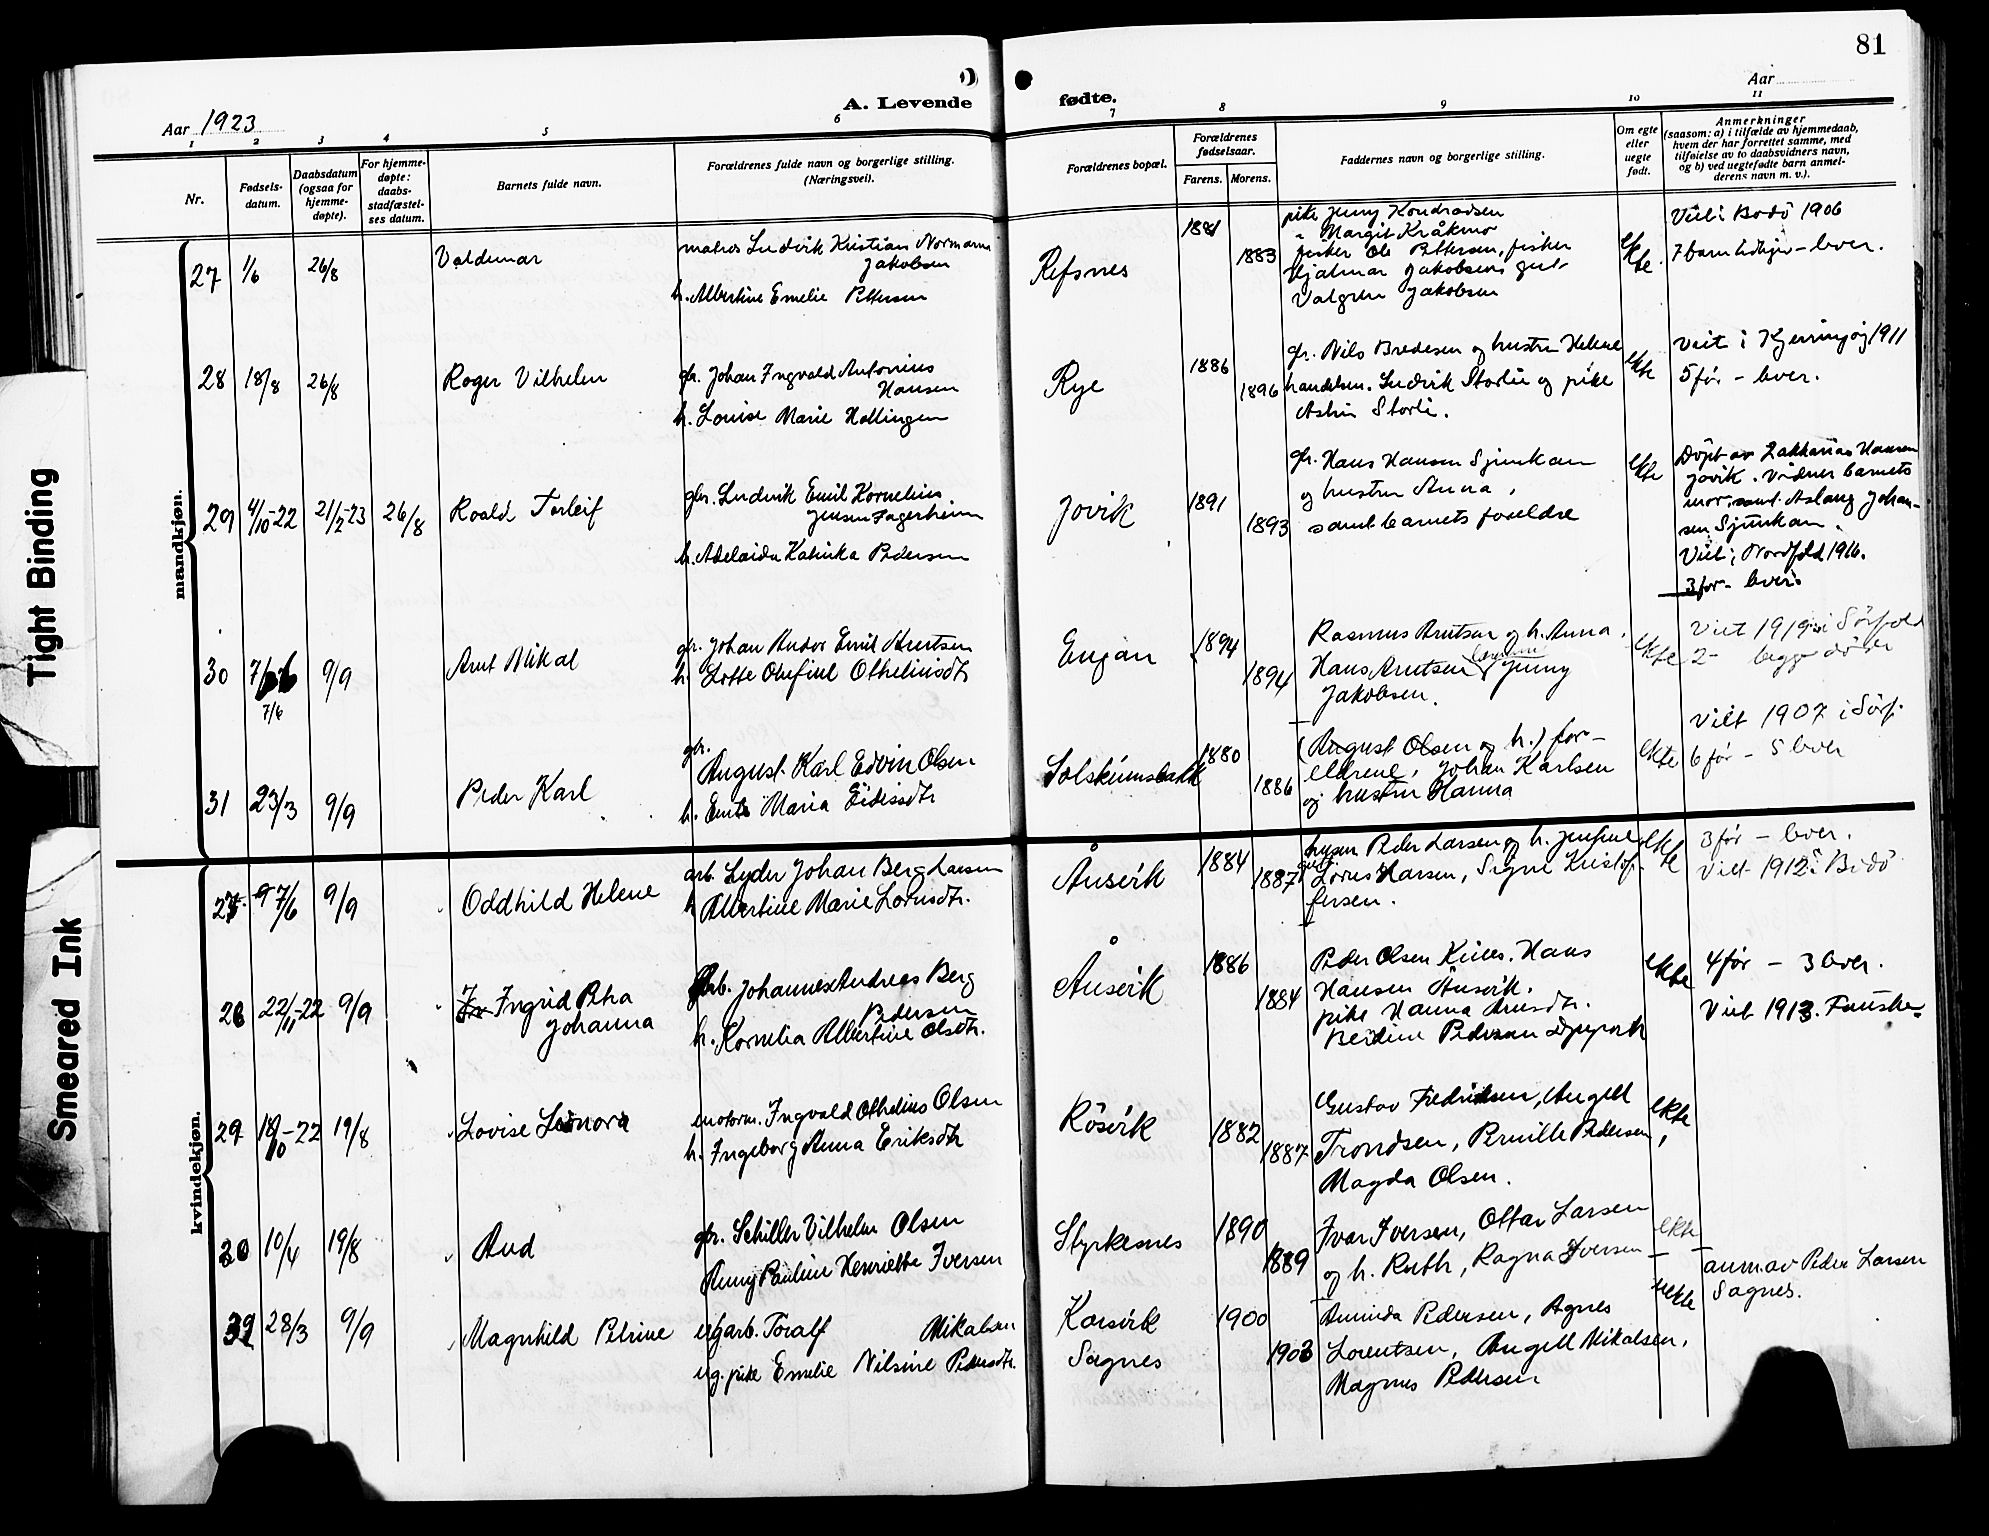 81
Aar 1923
A. Levende
fødte.
Aar
1 2 3 4 5 6 7 8 9 10 11
Nr.
Fødsels-
datum.
Daabsdatum
(ogsaa for
hjemme-
døpte).
For hjemme-
døpte:
daabs-
stadfæstel-
ses datum.
Barnets fulde navn.
Forældrenes fulde navn og borgerlige stilling.
(Næringsvei).
Forældrenes bopæl.
Forældrenes
fødselsaar.
Farens. Morens.
Faddernes navn og borgerlige stilling.
Om egte
eller
uegte
født.
Anmerkninger
(saasom: a) i tilfælde av hjemmedaab,
hvem der har forrettet samme, med
tilføielse av to daabsvidners navn,
og b) ved uegtefødte barn anmel-
derens navn m. v.).
mandkjøn.
27 1/6 26/8 Valdemar
matros Ludvik Kristian Normann
Jakobsen
h. Albertine Emelie Pettersen
Refsnes 1881 1883
pike Jenny Kondradsen
" Margit Kråkmo
fisker Ole Pettersen, fisker
Hjalmar Jakobsen, gut
Valgren Jakobsen
ekte
Viet i Bodö 1906
7 barn tidligere – lever.
28 18/8 26/8 Roger Vilhelm
gbr. Johan Ingvald Antonius
Hansen
h. Lovise Marie Hollingen
Rye 1886 1896
gbr. Nils Bredesen og hustru Helene
handelsm. Ludvik Storlie og pike
Astrin Storli.
ekte
Viet i Kjerringöy 1911
5 før – lever.
29 4/10-22 21/2-23 26/8 Roald Torleif
gbr. Ludvik Emil Kornelius
Jensen Fagerheim
h. Adelaida Katinka Pedersen
Jovik 1891 1893
gbr. Hans Hansen Sjunkan
og hustru Anna,
samt barnets foreldre
ekte
Döpt av Zakkarias Hansen
Jovik. Vidner barnets
mor, samt Aslaug Johan-
sen Sjunkan.
Viet i Nordfold 1916.
3 før – lever.
30 7/6 9/9 Arnt Mikal
7/6
gbr. Johan Andor Emil Arntsen
h. Lotte Olufine Otheliusdtr
Engan 1894 1894
Rasmus Arntsen og h. Anna,
Hans Arntsen, Jenny
Jakobsen.
ekte
Viet 1919 i Sörfold
2 – begge döde
31 23/3 9/9 Peder Karl
gbr.
August Karl Edvin Olsen
h. Emte Maria Eidissdtr
Solskinsbakk 1880 1886
(August Olsen og h.) for-
eldrene, Johan Karlsen
og hustru Hanna
ekte
Viet 1907 i Sörf.
6 før – 5 lever
kvindekjøn.
27 7/6 9/9 Oddhild Helene
arb. Lyder Johan Berg Larsen
h Albertine Marie Lornsdtr.
Ånsvik 1884 1887
husm Peder Larsen og h. Jensine
gut Lorns Hansen, Signe Kristof-
fersen.
ekte
3 før – lever.
Viet 1912 i Bodö
28 22/11-22 9/9 Ingrid Petra
Johanna
arb. Johannes Andreas Berg
Pedersen
h. Kornelia Albertine Olsdtr.
Ånsvik 1886 1884
Peder Olsen Kines. Hans
Hansen Ånsvik.
pike Hanna Arnsdtr.
Berdine Pedersen Djupvik
ekte
4 før – 3 lever.
Viet 1913. Fauske.
29 18/10-22 19/8 Lovise Leonora
motorm. Ingvald Othelius Olsen
h. Ingeborg Anna Eriksdtr
Rösvik 1882 1887
Gustav Fredriksen, Angell
Trondsen, Pernille Pedersen,
Magda Olsen.
ekte
30 10/4 19/8 Aud
gbr. Schiller Vilhelm Olsen
Anny Pauline Henriette Iversen
Styrkesnes 1890 1889
Ivar Iversen, Ottar Larsen
og h. Ruth, Ragna Iversen
ekte
31 28/3 9/9 Magnhild Petrine
ug. arb. Toralf Mikalsen
ug. pike Emelie Nilsine Pedersdtr.
Korsvik 1900 1903
Sagnes
Aminda Pedersen, Agnes
Lorentsen, Angell Mikalsen,
Magnus Pedersen
uekte
anm. av Peder Larsen
Sagnes.
Tight Binding
Smeared Ink